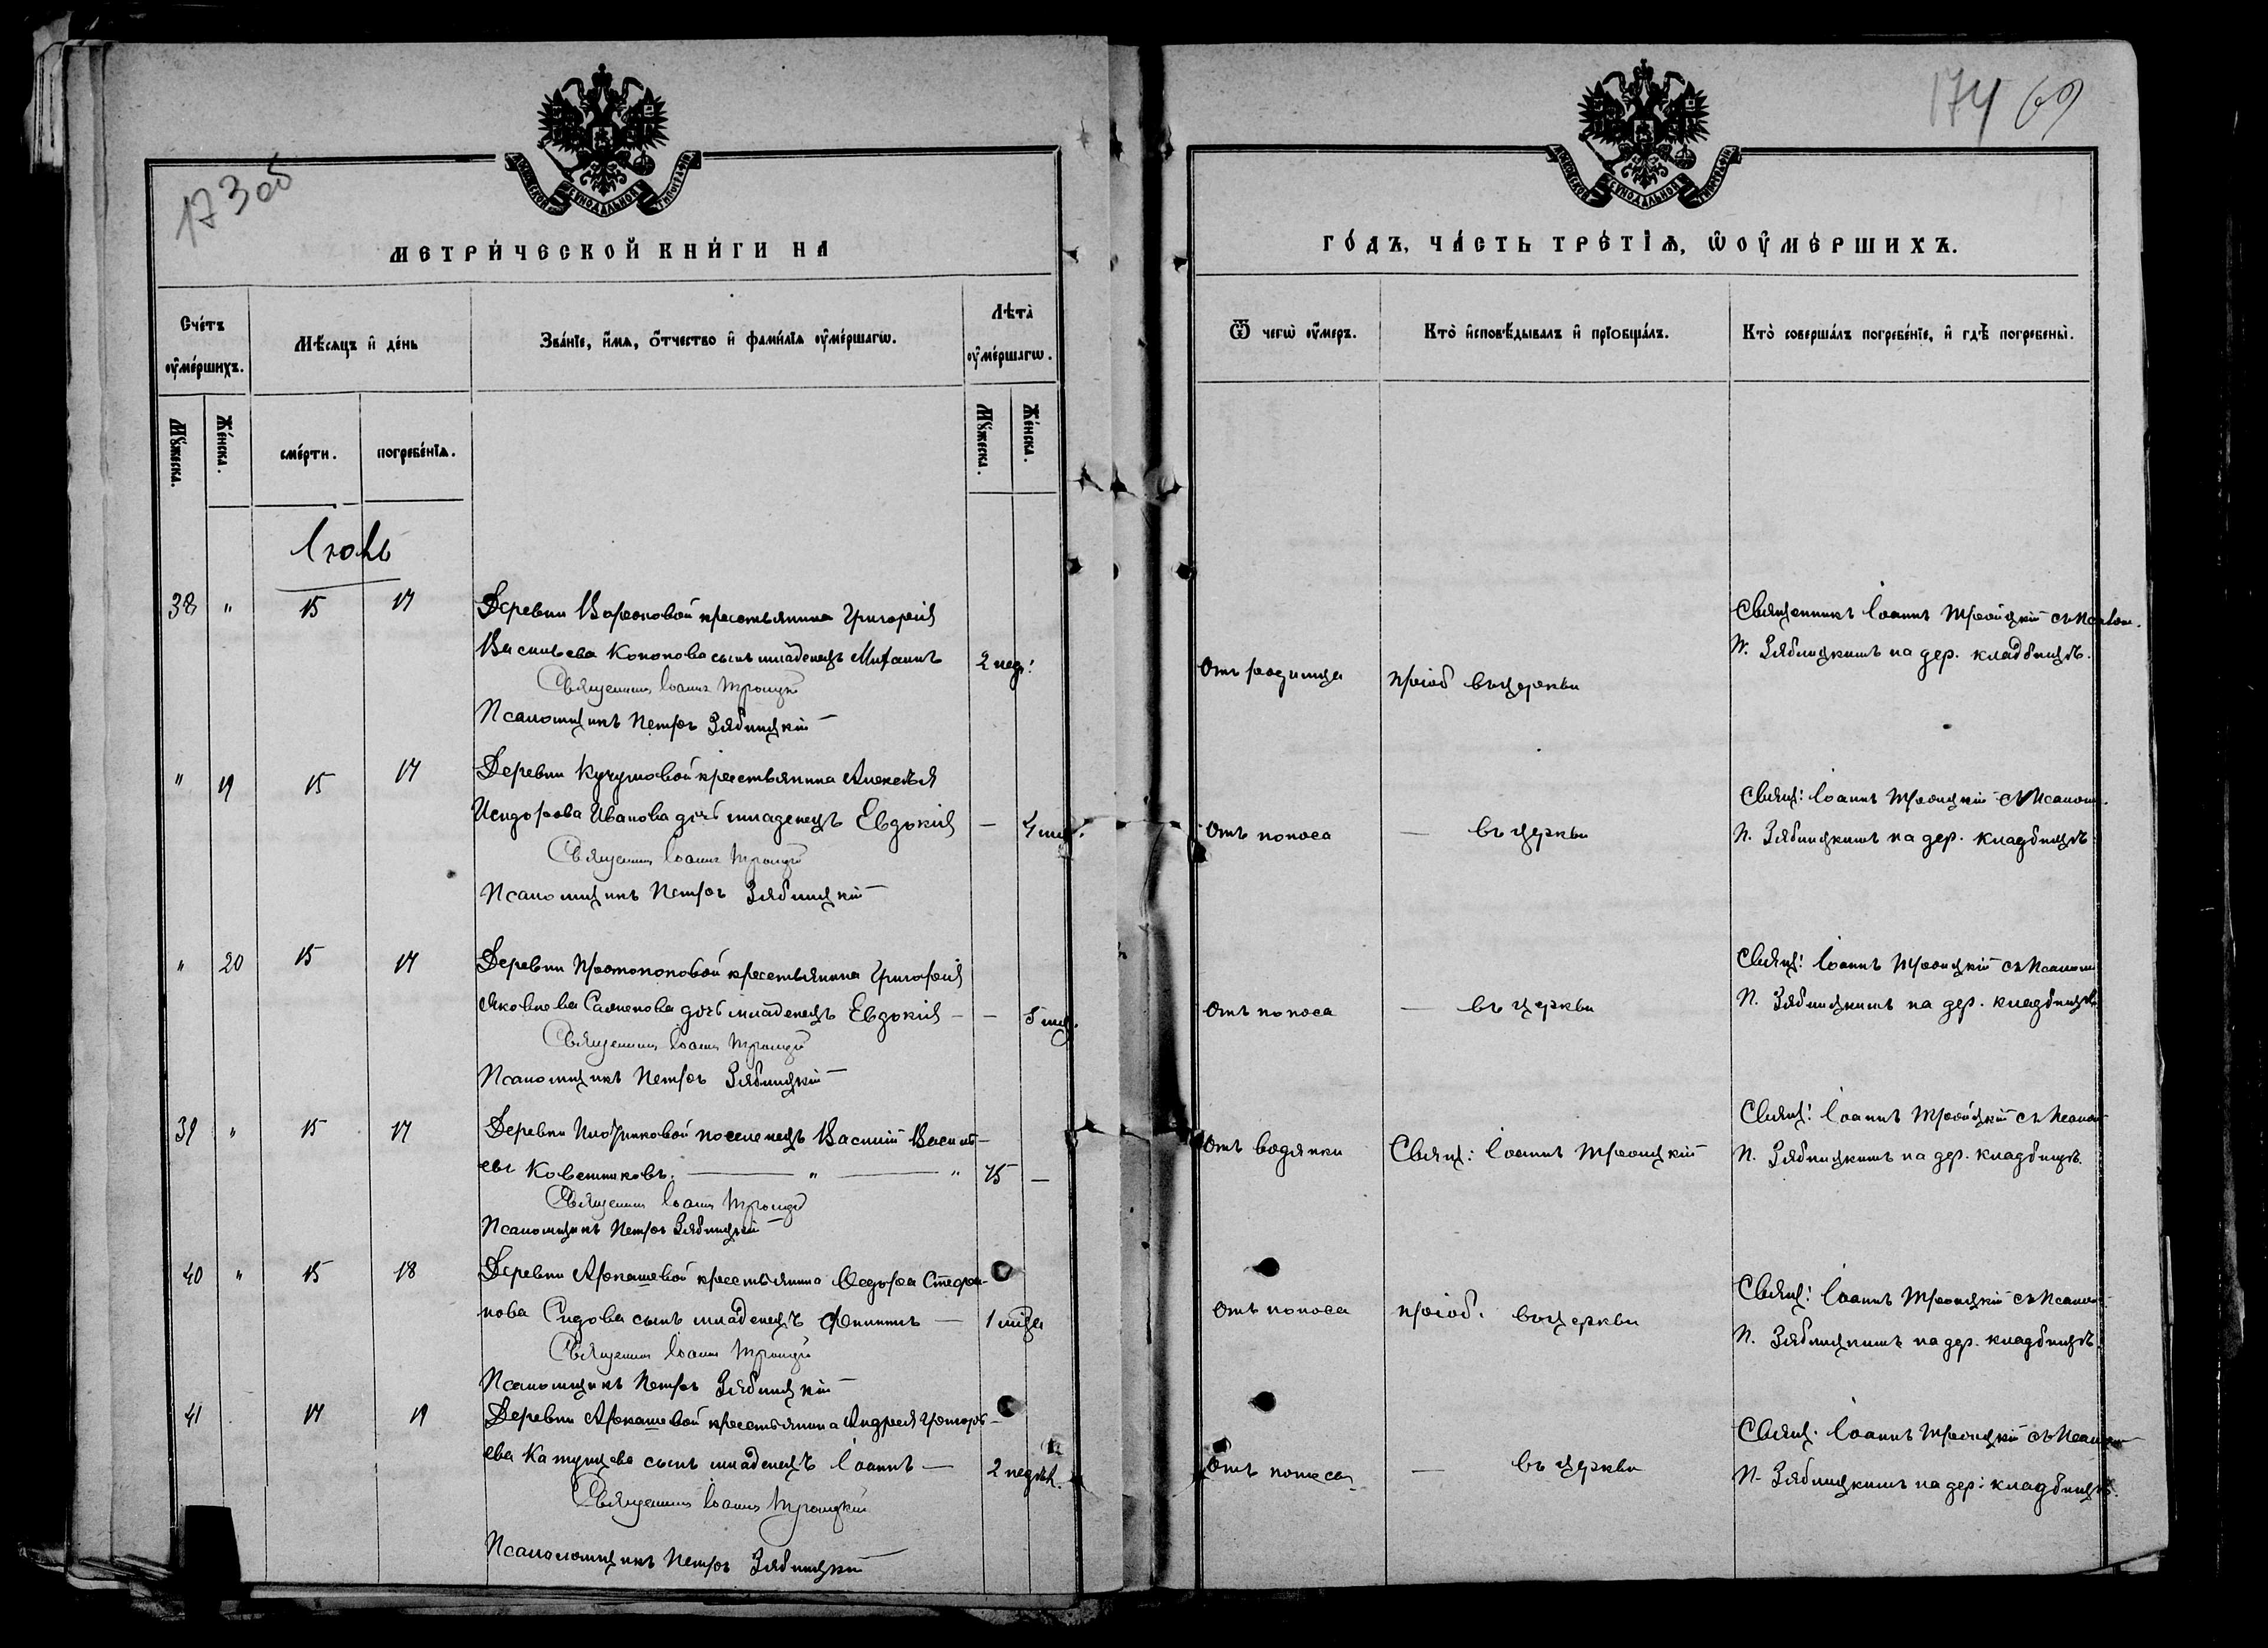 173 об
174 69
МОСКОВСКОЙ СѴНОДАЛЬНОЙ ТИПОГРАФІИ
МОСКОВСКОЙ СѴНОДАЛЬНОЙ ТИПОГРАФІИ
МЕТРИ́ЧЕСКОЙ КНИ́ГИ НА
ГО́ДЪ, ЧА́СТЬ ТРЕ́ТІѦ, Ѡ ОУ҆МЕ́РШИХЪ.
Сче́тъ оу҆ме́ршихъ.
Мѣ́сяцъ и҆ де́нь
Зва́нїе, и҆́мѧ, ѻ҆́тчество и҆ фами́лїѧ оу҆ме́ршагѡ.
Лѣ́та̀ оу҆ме́ршагѡ.
Ѿ чегѡ̀ оу҆́меръ.
Кто̀ и҆сповѣ́дывалъ и҆ прїобща́лъ.
Кто̀ соверша́лъ погребе́нїе, и҆ гдѣ̀ погребены̀.
Мꙋ́жеска.
Же́нска.
сме́рти.
погребе́нїѧ.
Мꙋ́жеска.
Же́нска.
Іюль
38 " 15 17 Деревни крестьянина Григорія
Васильева Кононова сынъ младенецъ Михаилъ 2 нед:
Священникъ Іоаннъ Троицкій
Псаломщикъ Петръ Зяблицкій
Отъ родимца пріоб въ церкви
Священникъ Іоаннъ Троицкій съ Псалом.
П. Зяблицкимъ на дер. кладбищѣ.
" 19 15 17 Деревни Кучумовой крестьянина Алексѣя
Исидорова Иванова дочь младенецъ Евдокія — 4 мѣс.
Священникъ Іоаннъ Троицкій
Псаломщикъ Петръ Зяблицкій
Отъ поноса — въ церкви
Свящ: Іоаннъ Троицкій съ Псалом.
П. Зяблицкимъ на дер. кладбищѣ.
" 20 15 17 Деревни Протопоповой крестьянина Григорія
Яковлева дочь младенецъ Евдокія — — 5 мѣс.
Священникъ Іоаннъ Троицкій
Псаломщикъ Петръ Зяблицкій
Отъ поноса — въ церкви
Свящ: Іоаннъ Троицкій съ Псалом
П. Зяблицкимъ на дер. кладбищѣ
39 " 15 17 Деревни поселенецъ Василій Василь-
евъ 75 —
Священникъ Іоаннъ Троицкій
Псаломщикъ Петръ Зяблицкій
Отъ водянки Свящ: Іоаннъ Троицкій
Свящ: Іоаннъ Троицкій съ Псалом
П. Зяблицкимъ на дер. кладбищѣ.
40 " 15 18 Деревни Аркашевой крестьянина Ѳедора Стефа-
нова сынъ младенецъ Филиппъ — 1 мѣсяц
Священникъ Іоаннъ Троицкій
Псаломщикъ Петръ Зяблицкій
Отъ поноса пріоб. въ церкви
Свящ: Іоаннъ Троицкій съ Псалом.
П. Зяблицкимъ на дер. кладбищѣ.
41 17 19 Деревни Аркашевой крестьянина Андрея Григорь-
ева сынъ младенецъ Іоаннъ — 2 недѣл.
Священникъ Іоаннъ Троицкій
Псаломщикъ Петръ Зяблицкій
Отъ поноса — въ церкви
Свящ. Іоаннъ Троицкій съ Псалом
П. Зяблицкимъ на дер: кладбищѣ.